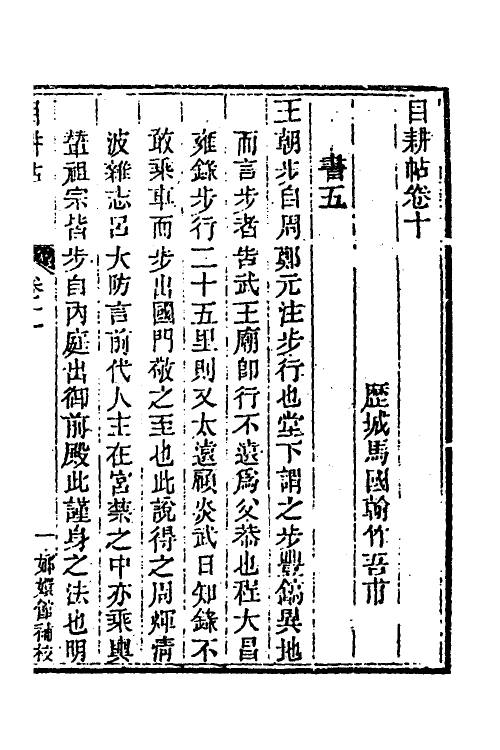 目耕帖卷十
歷城馬國翰竹吾甫
書五
王朝步自周鄭元注步行也堂下謂之步豐鎬異地
而言步者告武王廟即行不遠為父恭也程大昌
雍錄步行二十五里則又太遠顧炎武日知錄不
敢乘車而步出國門敬之至也此說得之周煇清
波雜志呂大防言前代人主在宮禁之中亦乘輿
輦祖宗皆步自內庭出御前殿此謹身之法也明
目耕帖
卷十
一
嫏嬛館補校